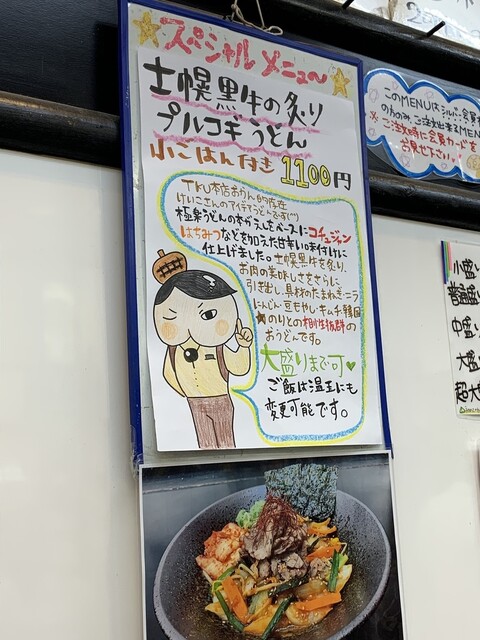 スペシャルメニュー
士幌黒牛の炙り
プルコギうどん
小ごはん付き 1100円
TKU本店おかん的存在
けいこさんのアイデアうどんです(^^)
極楽うどんの本がえしをベースにコチュジャン
はちみつなどを加えた甘辛い味付けに
仕上げました。士幌黒牛を炙り、
お肉の美味しさをさらに
引き出し、具材のたまねぎ・ニラ
にんじん・豆もやし・キムチ・韓国
のりとの相性抜群の
おうどんです。
大盛りまで可♥
ご飯は温玉にも
変更可能です。
このMENUはシルバー会員
のみ、ご注文出来るMENU
※ご注文時に会員カードを
お見せ下さい
小盛り
普通盛り
中盛り
大盛
超大